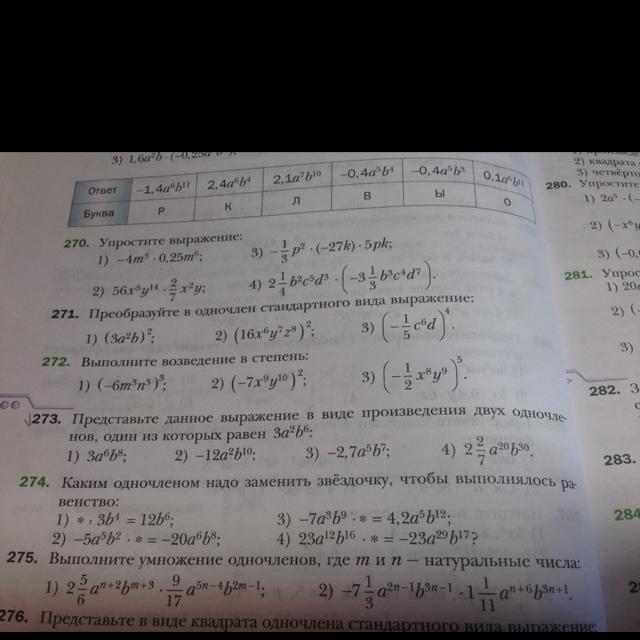 3) 1,6a²b · (−0,25a
Ответ −1,4a⁶b¹¹ 2,4a⁶b⁴ 2,1a⁷b¹⁰ −0,4a⁵b⁴ −0,4a⁵b³ 0,1a⁶b¹¹
Буква Р К Л В Ы О
270. Упростите выражение:
1) −4m³ · 0,25m⁶; 3) −1/3 p² · (−27k) · 5pk;
2) 56x⁵y¹⁴ · 2/7 x²y; 4) 2 1/4 b²c⁵d³ · (−3 1/3 b³c⁴d⁷).
271. Преобразуйте в одночлен стандартного вида выражение:
1) (3a²b)²; 2) (16x⁶y⁷z⁸)²; 3) (−1/5 c⁶d)⁴.
272. Выполните возведение в степень:
1) (−6m³n³)³; 2) (−7x⁹y¹⁰)²; 3) (−1/2 x⁸y⁹)⁵.
273. Представьте данное выражение в виде произведения двух одночле-
нов, один из которых равен 3a²b⁶:
1) 3a⁶b⁸; 2) −12a²b¹⁰; 3) −2,7a⁵b⁷; 4) 2 2/7 a²⁰b³⁰.
274. Каким одночленом надо заменить звёздочку, чтобы выполнялось ра-
венство:
1) * · 3b⁴ = 12b⁶; 3) −7a³b⁹ · * = 4,2a⁵b¹²;
2) −5a⁵b² · * = −20a⁶b⁸; 4) 23a¹²b¹⁶ · * = −23a²⁹b¹⁷?
275. Выполните умножение одночленов, где m и n – натуральные числа:
1) 2 5/6 aⁿ⁺²bᵐ⁺³ · 9/17 a⁵ⁿ⁻⁴b²ᵐ⁻¹; 2) −7 1/3 a²ⁿ⁻¹b³ⁿ⁻¹ · 1 1/11 aⁿ⁺⁶b³ⁿ⁺¹.
276. Представьте в виде квадрата одночлена стандартного вида выражение:
2) квадрата
3) четвёрто
280. Упростите
1) 2a⁵ · (−
2) (−x⁶y
3) (−0,
281. Упрос
1) 20
2) (−
3)
282. З
283.
284